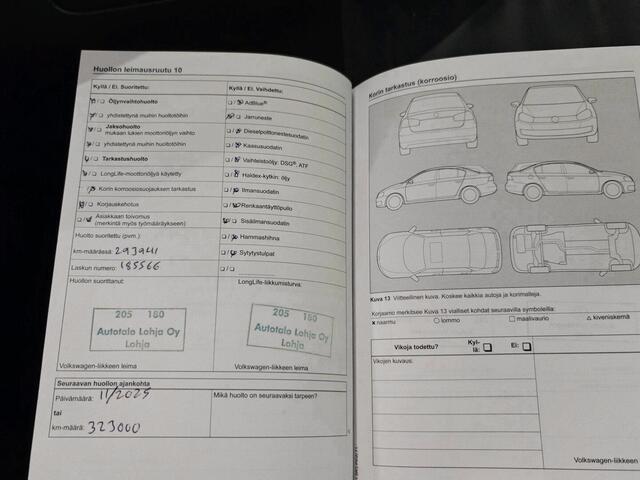 Huollon leimausruutu 10
Kyllä / Ei. Suoritettu:
Öljynvaihtohuolto
yhdistettynä muihin huoltotöihin
Jaksohuolto
mukaan lukien moottoriöljyn vaihto
yhdistettynä muihin huoltotöihin
Tarkastushuolto
LongLife-moottoriöljyä käytetty
Korin korroosiosuojauksen tarkastus
Korjauskehotus
Asiakkaan toivomus
(merkintä myös työmääräykseen)
Huolto suoritettu (pvm.)
km-määrässä: 293941
Laskun numero: 185566
Huollon suorittanut:
205 180
Autotalo Lohja Oy
Lohja
Volkswagen-liikkeen leima
Kyllä / Ei. Vaihdettu:
AdBlue®
Jarruneste
Dieselpolttonestesuodatin
Kaasusuodatin
Vaihteistoöljy: DSG®, ATF
Haldex-kytkin: öljy
Ilmansuodatin
Renkaantäyttöpullo
Sisäilmansuodatin
Hammashihna
Sytytystulpat
LongLife-liikkumisturva:
205 180
Autotalo Lohja Oy
Lohja
Volkswagen-liikkeen leima
Seuraavan huollon ajankohta
Päivämäärä: 11/2025
tai
km-määrä: 323000
Mikä huolto on seuraavaksi tarpeen?
Korin tarkastus (korroosio)
Kuva 13 Viitteellinen kuva. Koskee kaikkia autoja ja korimalleja.
Korjaamo merkitsee Kuva 13 vialliset kohdat seuraavilla symboleilla:
x naarmu ○ lommo □ maalivaurio △ kiveniskemä
Vikoja todettu? Kyl-
lä: Ei:
Vikojen kuvaus:
Volkswagen-liikkeen